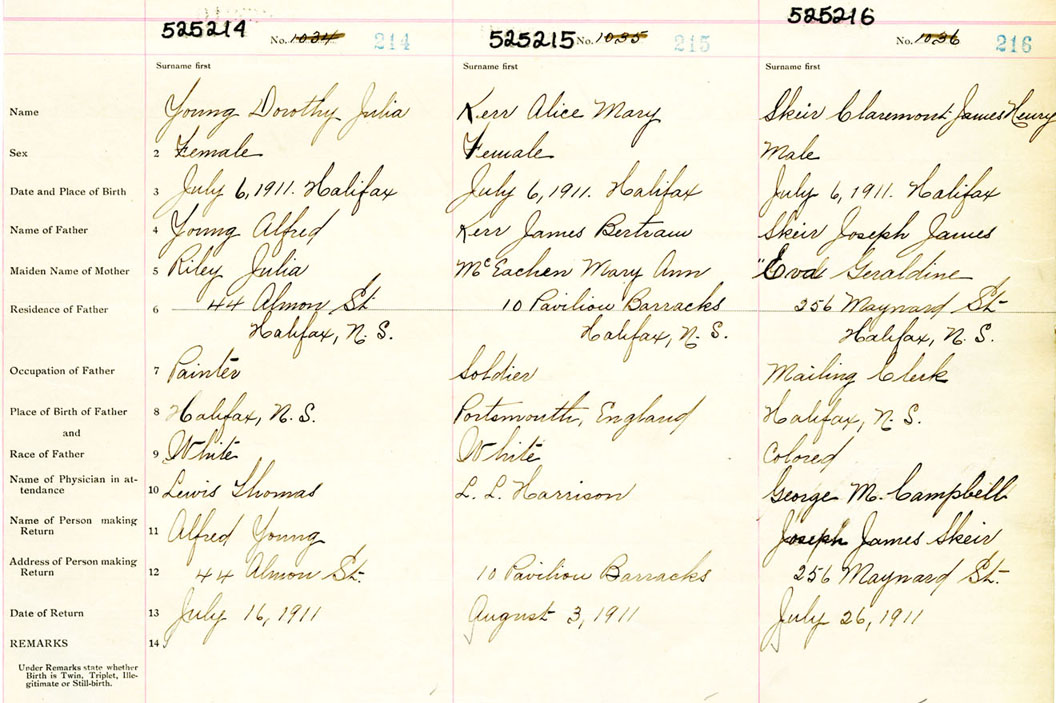 525214 No. 1034 214 525215 No. 1035 215 525216 No. 1036 216
Surname first Surname first Surname first
Name Young Dorothy Julia Kerr Alice Mary Skeir Claremont James Henry
Sex 2 Female Female Male
Date and Place of Birth 3 July 6, 1911. Halifax July 6, 1911. Halifax July 6, 1911. Halifax
Name of Father 4 Young Alfred Kerr James Bertram Skeir Joseph James
Maiden Name of Mother 5 Riley Julia McEachen Mary Ann " Eva Geraldine
Residence of Father 6 44 Almon St. 10 Pavilion Barracks 256 Maynard St.
Halifax, N.S. Halifax, N.S. Halifax, N.S.
Occupation of Father 7 Painter Soldier Mailing Clerk
Place of Birth of Father 8 Halifax, N.S. Portsmouth, England Halifax, N.S.
and
Race of Father 9 White White Colored
Name of Physician in at-
tendance 10 Lewis Thomas L. L. Harrison George M. Campbell
Name of Person making
Return 11 Alfred Young Joseph James Skeir
Address of Person making
Return 12 44 Almon St. 10 Pavilion Barracks 256 Maynard St.
Date of Return 13 July 16, 1911 August 3, 1911 July 26, 1911
REMARKS 14
Under Remarks state whether
Birth is Twin, Triplet, Ille-
gitimate or Still-birth.